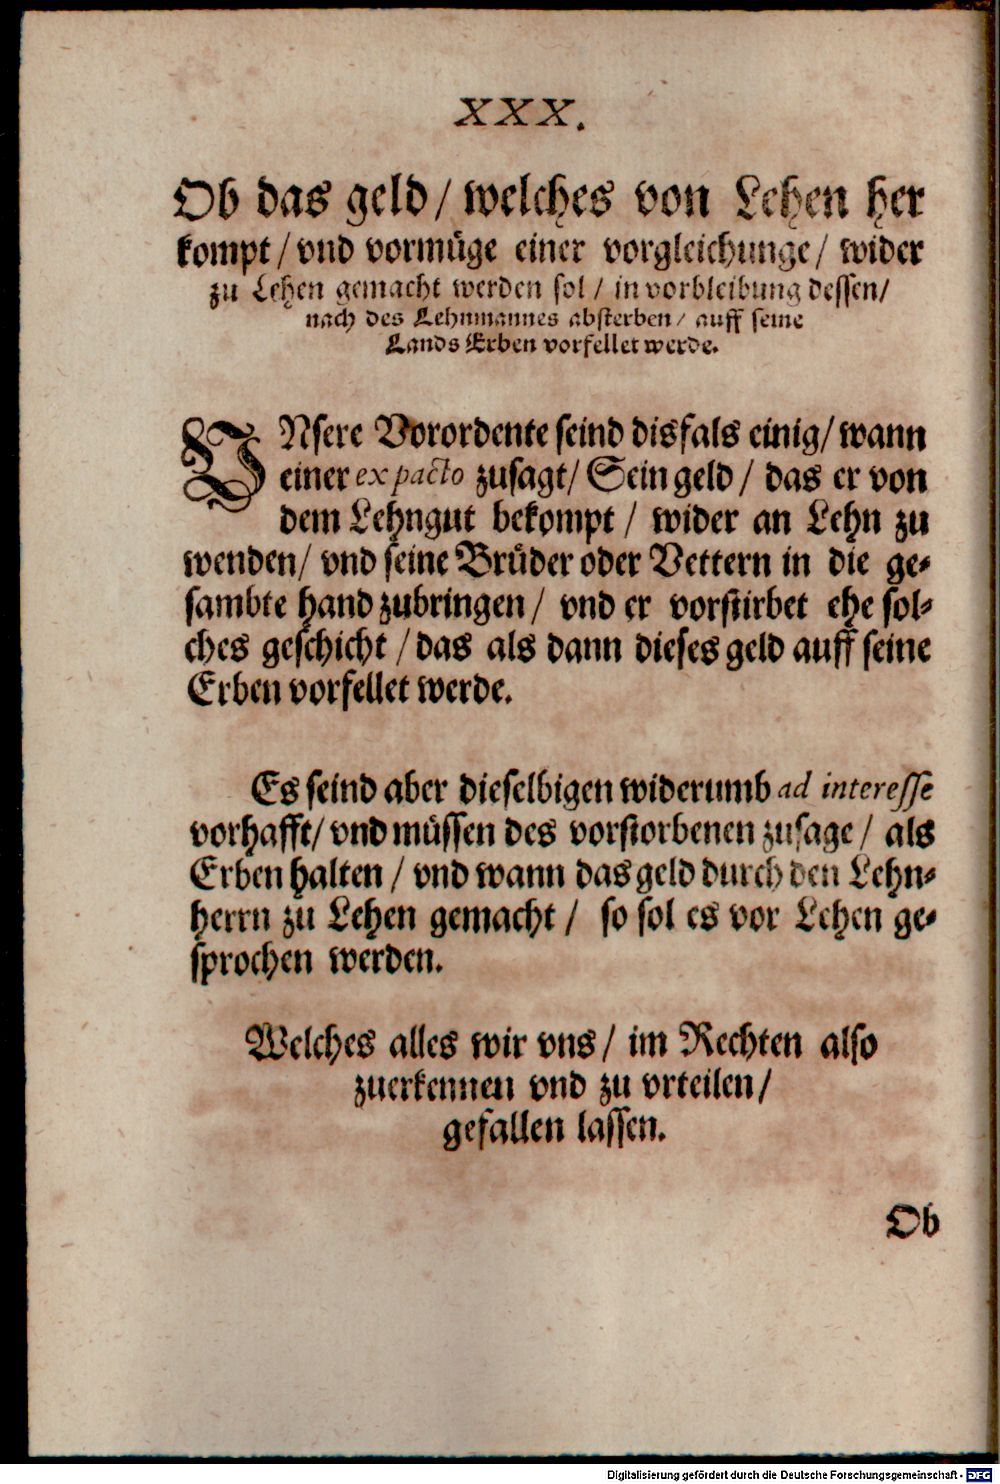 XXX.
Ob das geld / welches von Lehen her
kompt / vnd vormüge einer vorgleichunge / wider
zu Lehen gemacht werden sol / in vorbleibung dessen /
nach des Lehnmannes absterben / auff seine
Lands Erben vorfellet werde.
VNsere Vorordente seind disfals einig / wann
einer ex pacto zusagt / Sein geld / das er von
dem Lehngut bekompt / wider an Lehn zu
wenden / vnd seine Brüder oder Vettern in die ge-
sambte hand zubringen / vnd er vorstirbet ehe sol-
ches geschicht / das als dann dieses geld auff seine
Erben vorfellet werde.
Es seind aber dieselbigen widerumb ad interesse
vorhafft / vnd müssen des vorstorbenen zusage / als
Erben halten / vnd wann das geld durch den Lehn-
herrn zu Lehen gemacht / so sol es vor Lehen ge-
sprochen werden.
Welches alles wir vns / im Rechten also
zuerkennen vnd zu vrteilen /
gefallen lassen.
Ob
Digitalisierung gefördert durch die Deutsche Forschungsgemeinschaft - DFG